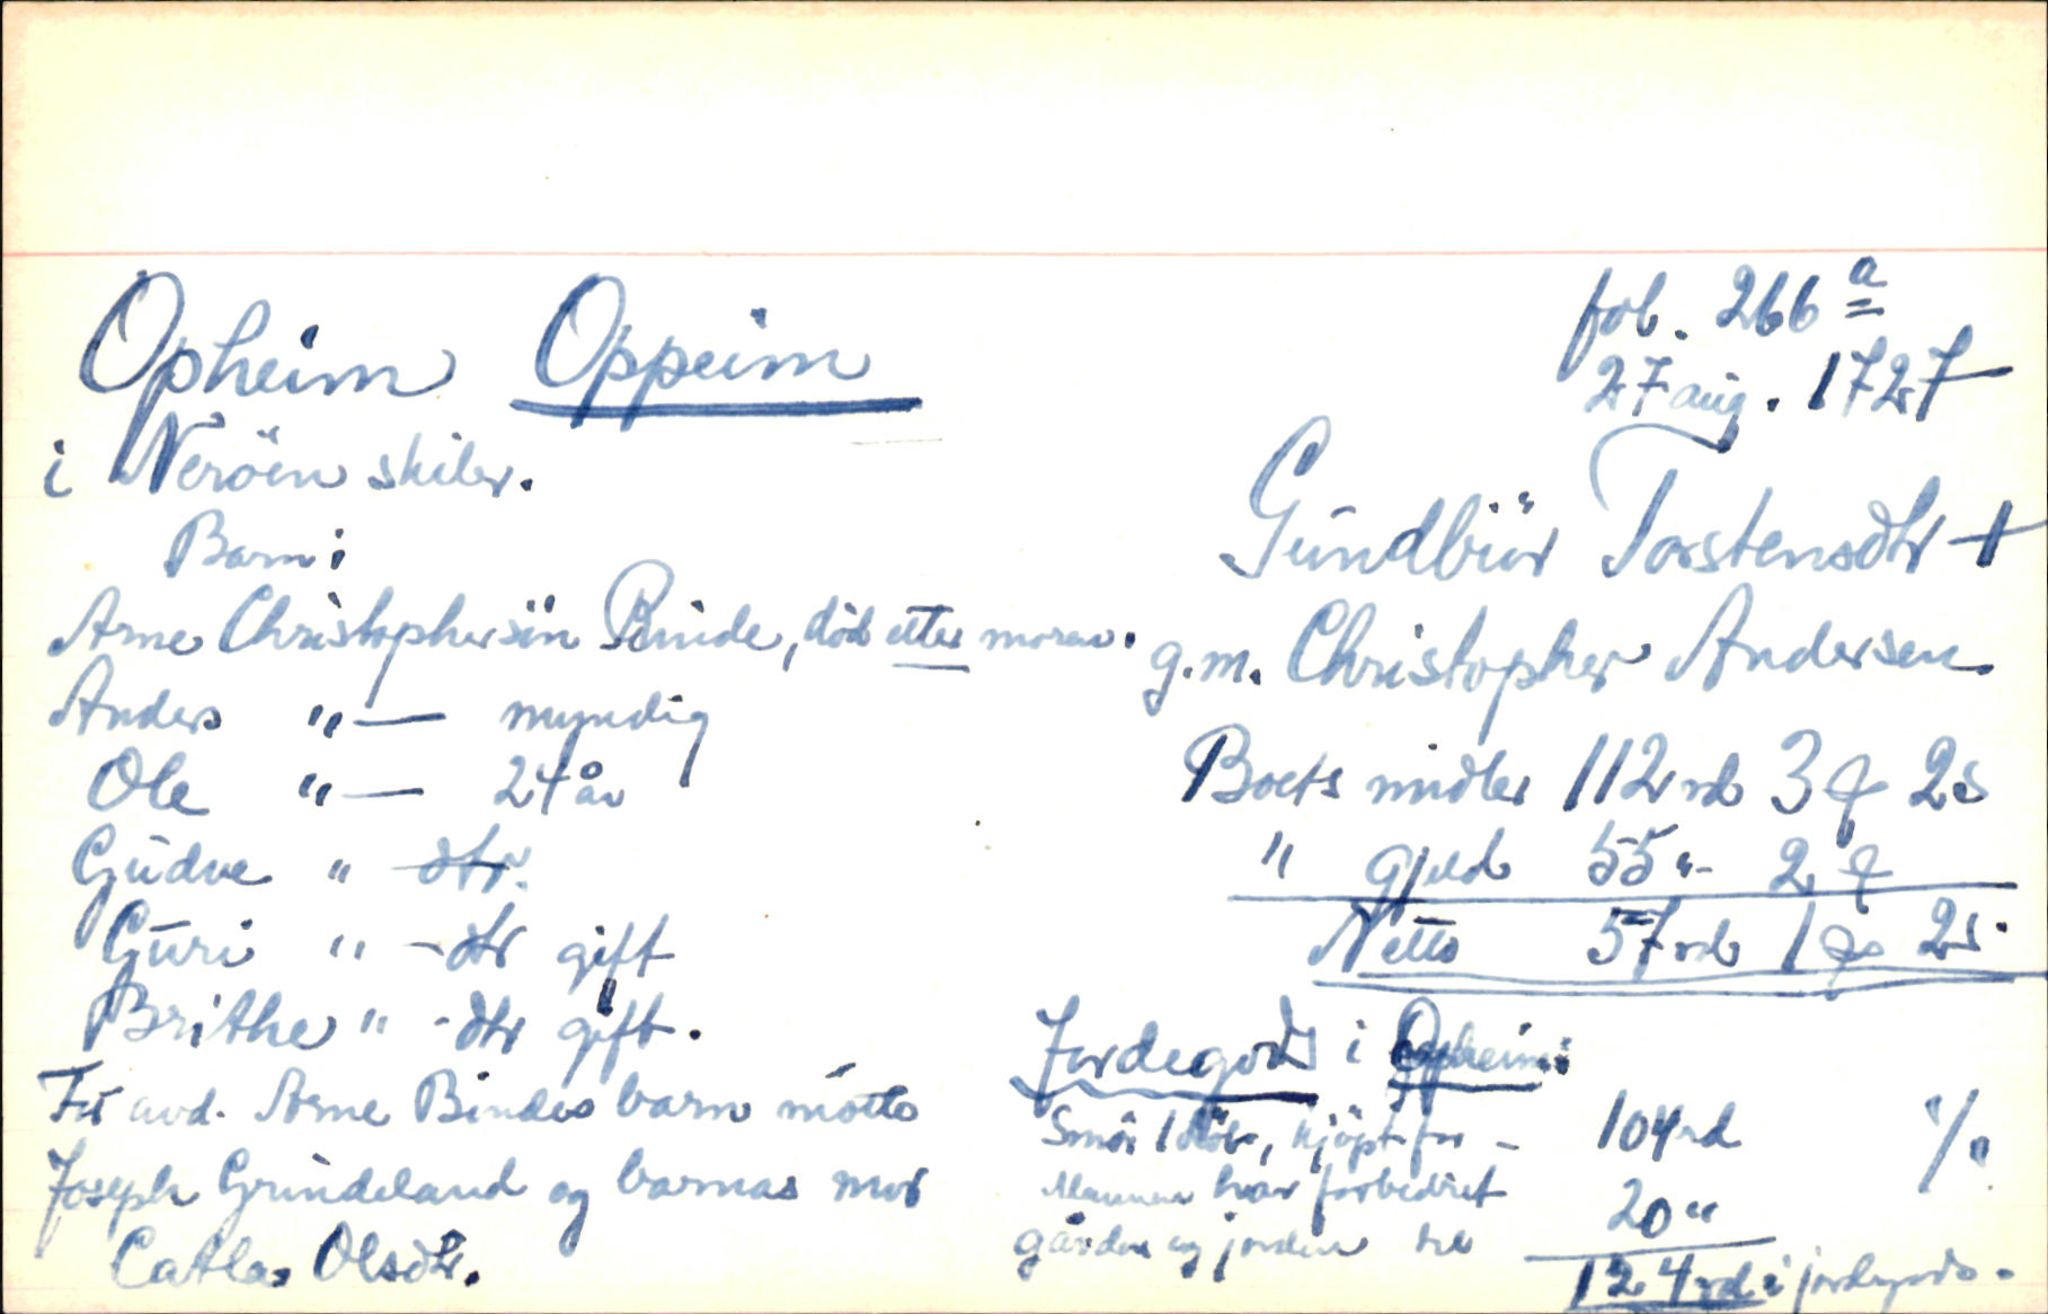 Opheim Oppeim
i Neröen skiler.
Barn:
Arne Christophersön Binde, död etter moren.
Anders "— myndig
Ole "— 24 år
Gudve " dtr.
Guri " - dtr gift
Brithe " - dtr gift.
For avd. Arne Bindes barn mötte
Joseph Grindeland og barnas mor
Catla Olsdtr.
fol. 266 a
27 aug. 1727
Gundbür Torstensdtr +
g.m. Christopher Andersen.
Boets midler 112 rd 3 2 s
" gjeld 55 " 2
Netto 57 rd 1 2 s.
Jordegods i Opheim:
Smör 1 löb, kjöpt for - 104 rd
Mannen har forbedret
gården og jorden 20 "
124 rd i jordegods.